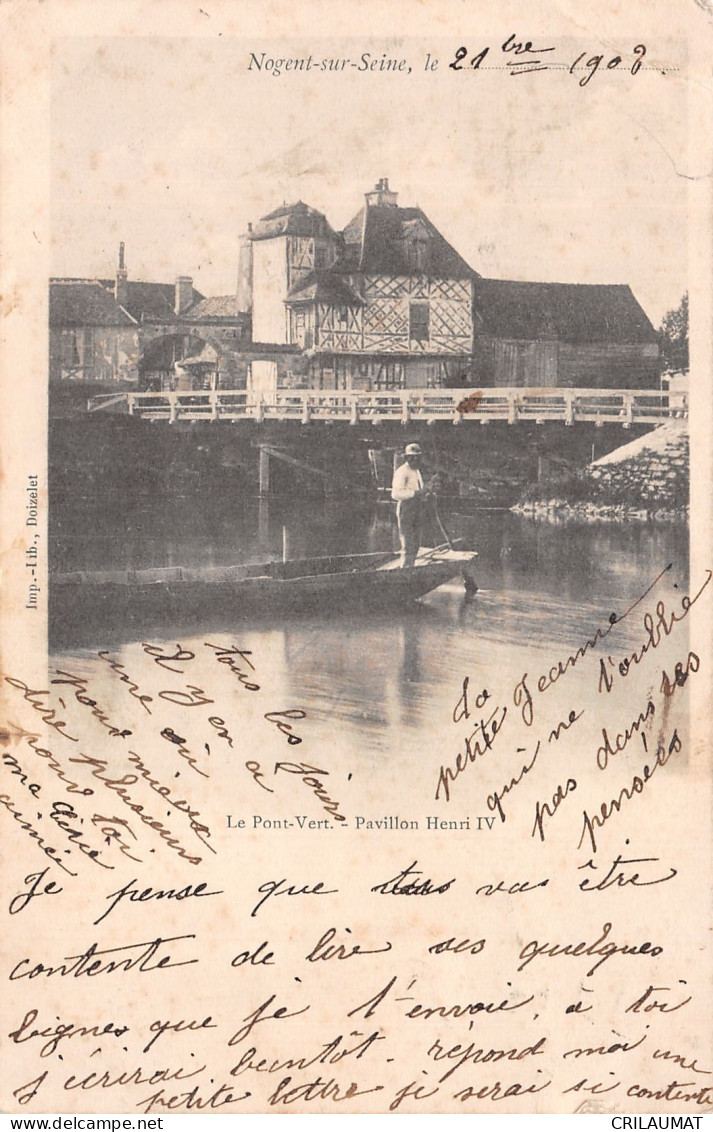 Nogent-sur-Seine, le 21 bre 1903
Imp.-Lib., Doizelet
tous les jours
il y en a
une où
pour mieux
dire plusieurs
pour toi
ma chérie
aimée
La
petite Jeanne
qui ne l'oublie
pas dans ses
pensées
Le Pont-Vert. - Pavillon Henri IV
Je pense que tu vas être
contente de lire ses quelques
lignes que je t'envoie, à toi
j'écrirai bientôt. répond moi une
petite lettre je serai si contente
CRILAUMAT